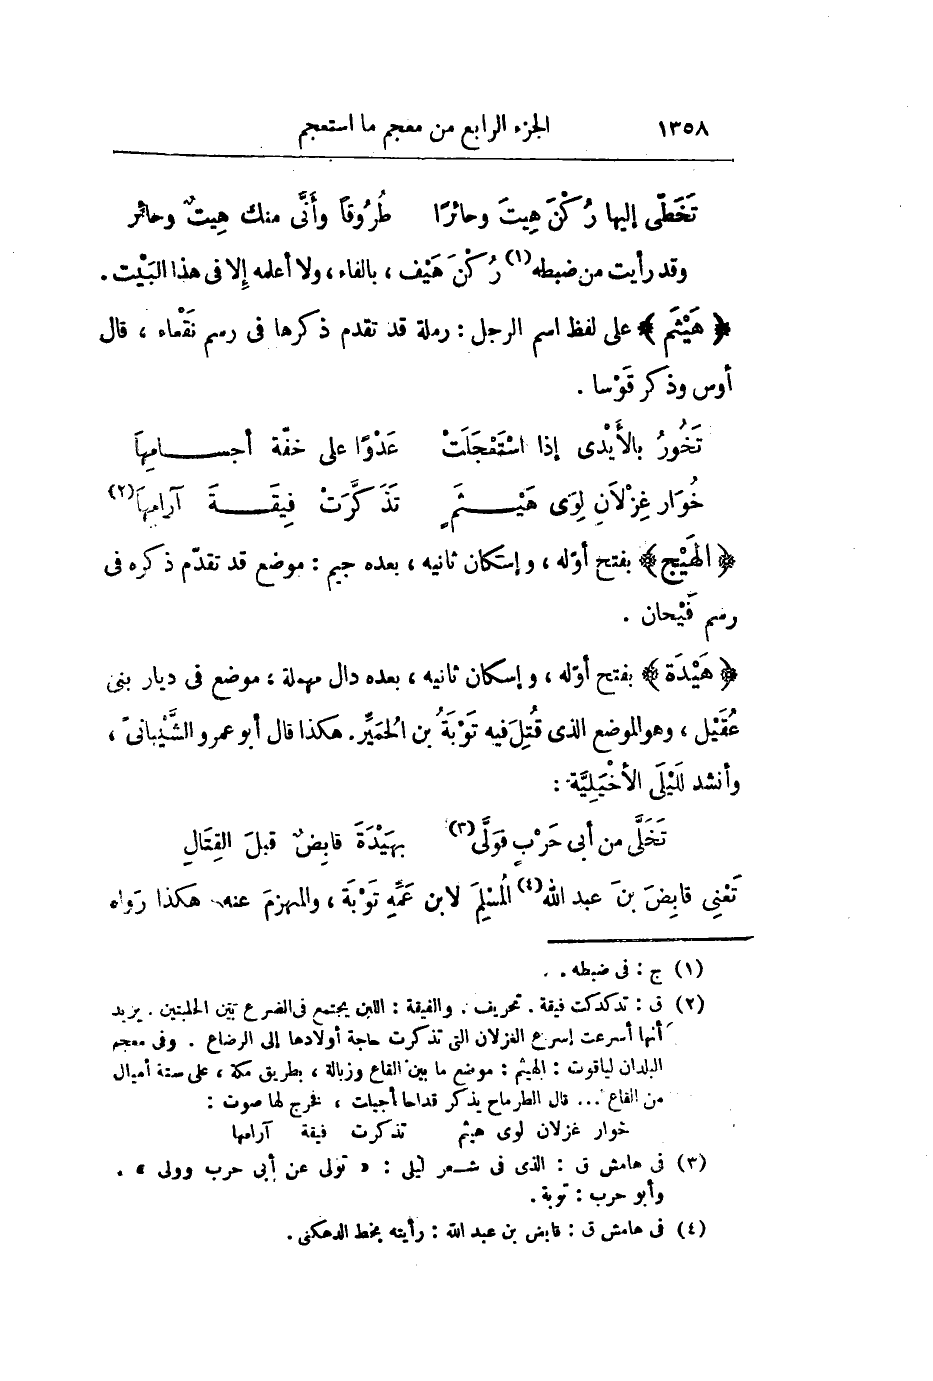 ١٣٥٨ الجزء الرابع من معجم ما استعجم
تَخَطَّى إليها رُكْنَ هِيتَ وحائرًا طُرُوقاً وأَنَّى منك هِيتٌ وحائر
وقد رأيت من ضبطه(١) رُكْنَ هَيْف ، بالفاء ، ولا أعلمه إلا فى هذا البَيْت .
﴿ هَيْثَم ﴾ على لفظ اسم الرجل : رملة قد تقدم ذكرها فى رسم نَقْعاء ، قال
أوس وذكر قَوْسا .
تَخُورُ بالأَيْدى إذا اسْتُعْجَلَتْ عَدْوًا على خفّة أجسامِهاَ
خُوَار غِزْلاَنِ لِوَى هَيْثَمٍ تَذَكَّرَتْ فِيقَةَ آرامِهاَ(٢)
﴿ الهَيْج ﴾ بفتح أوّله ، وإسكان ثانيه ، بعده جيم : موضع قد تقدّم ذكره فى
رسم فَيْحان .
﴿ هَيْدَة ﴾ بفتح أوّله ، وإسكان ثانيه ، بعده دال مهملة ، موضع فى ديار بنى
عُقَيْل ، وهو الموضع الذى قُتِلَ فيه تَوْبَةُ بن الحُمَيِّر . هكذا قال أبو عمرو الشَّيْبانىّ ،
وأنشد لَلَيْلَى الأَخْيَلِيَّة :
تَخَلَّى من أبى حَرْبٍ فوَلَّى(٣) بهَيْدَةَ قابِضٌ قبلَ القِتَالِ
تَعْنِى قابِضَ بنَ عبد الله(٤) المُسْلِمَ لابن عَمِّهِ تَوْبَةَ ، والمنهزمَ عنه . هكذا رَواه
(١) ج : فى ضبطه .
(٢) ق : تدكدكت فيقة . تحريف . والفيقة : اللبن يجتمع فى الضرع بين الحلبتين . يريد
أنها أسرعت إسرع الغزلان التى تذكرت حاجة أولادها إلى الرضاع . وفى معجم
البلدان لياقوت : الهيثم : موضع ما بين القاع وزبالة ، بطريق مكة ، على ستة أميال
من القاع ... قال الطرماح يذكر قداحا أجيلت ، فخرج لها صوت :
خوار غزلان لوى هيثم تذكرت فيقة آرامها
(٣) فى هامش ق : الذى فى شعر ليلى : « تولى عن أبى حرب وولى » .
وأبو حرب : توبة .
(٤) فى هامش ق : قابض بن عبد الله : رأيته بخط الدهكى .